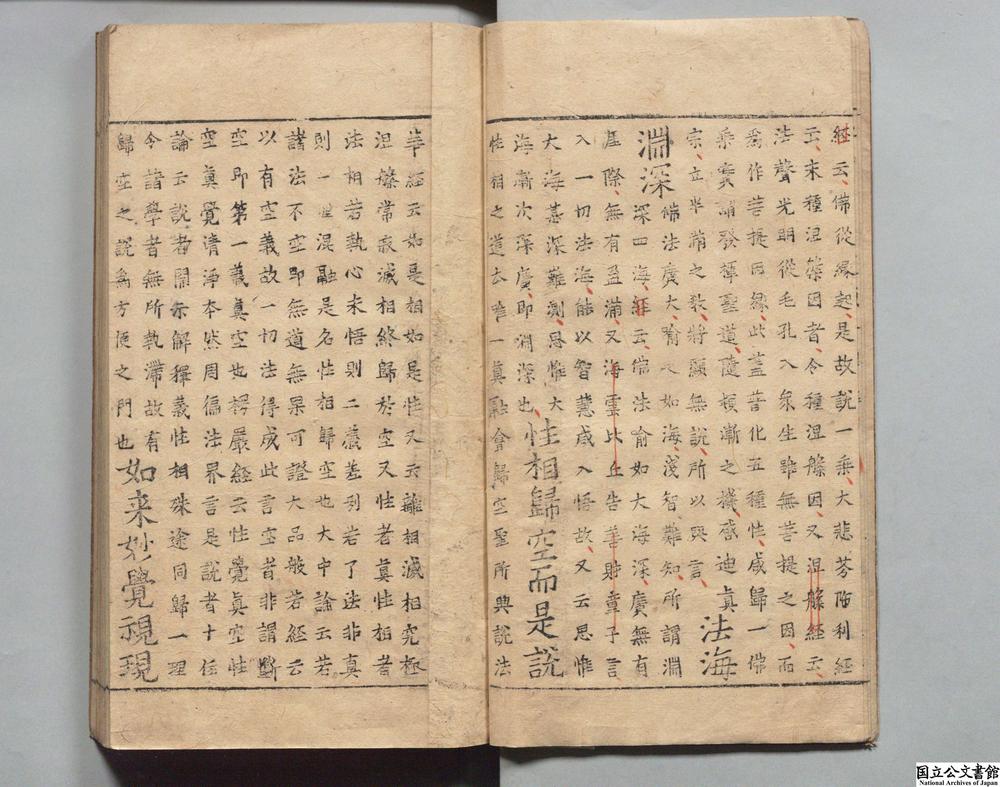 経云、佛從緣起、是故說一乗、大悲芬陁利経
云、未種涅槃因者、令種涅槃因、又涅槃経云、
法聲光明從毛孔入衆生雖無菩提之因、而
爲作菩提因縁、此盖普化五種性咸歸一佛
乗實誘發揮聖道、隨頓漸之機感迪真
宗、立半滿之教、將顯無說、所以興言、法海
淵深佛法廣大喻之如海、淺智難知、所謂淵
深四海、経云、佛法喻如大海深、廣無有
崖際、無有盈滿、又海雲比丘告善財童子言、
入一切法海、能以智慧咸入悟故、又云思惟
大海甚深難測、思惟大
海漸次深廣、即淵深也、性相歸空而是說
性相之道本唯一真融會歸空聖所典說法
華経云如是相如是性又云離相滅相究極
涅槃常寂滅相終歸於空又性者真性相者
法相若執心未悟則二義差別若了法非真
則一理混融是名性相歸空也大中論云若
諸法不空即無道無果可證大品般若経云
以有空義故一切法得成此言空者非謂斷
空即第一義真空也楞嚴経云性覺真空性
空真覺清淨本然周徧法界言是說者十住
論云說者開示解釋義性相殊途同歸一理
今諸學者無所執滯故有
歸空之說爲方便之門也如来妙覺視現
国立公文書館
National Archives of Japan